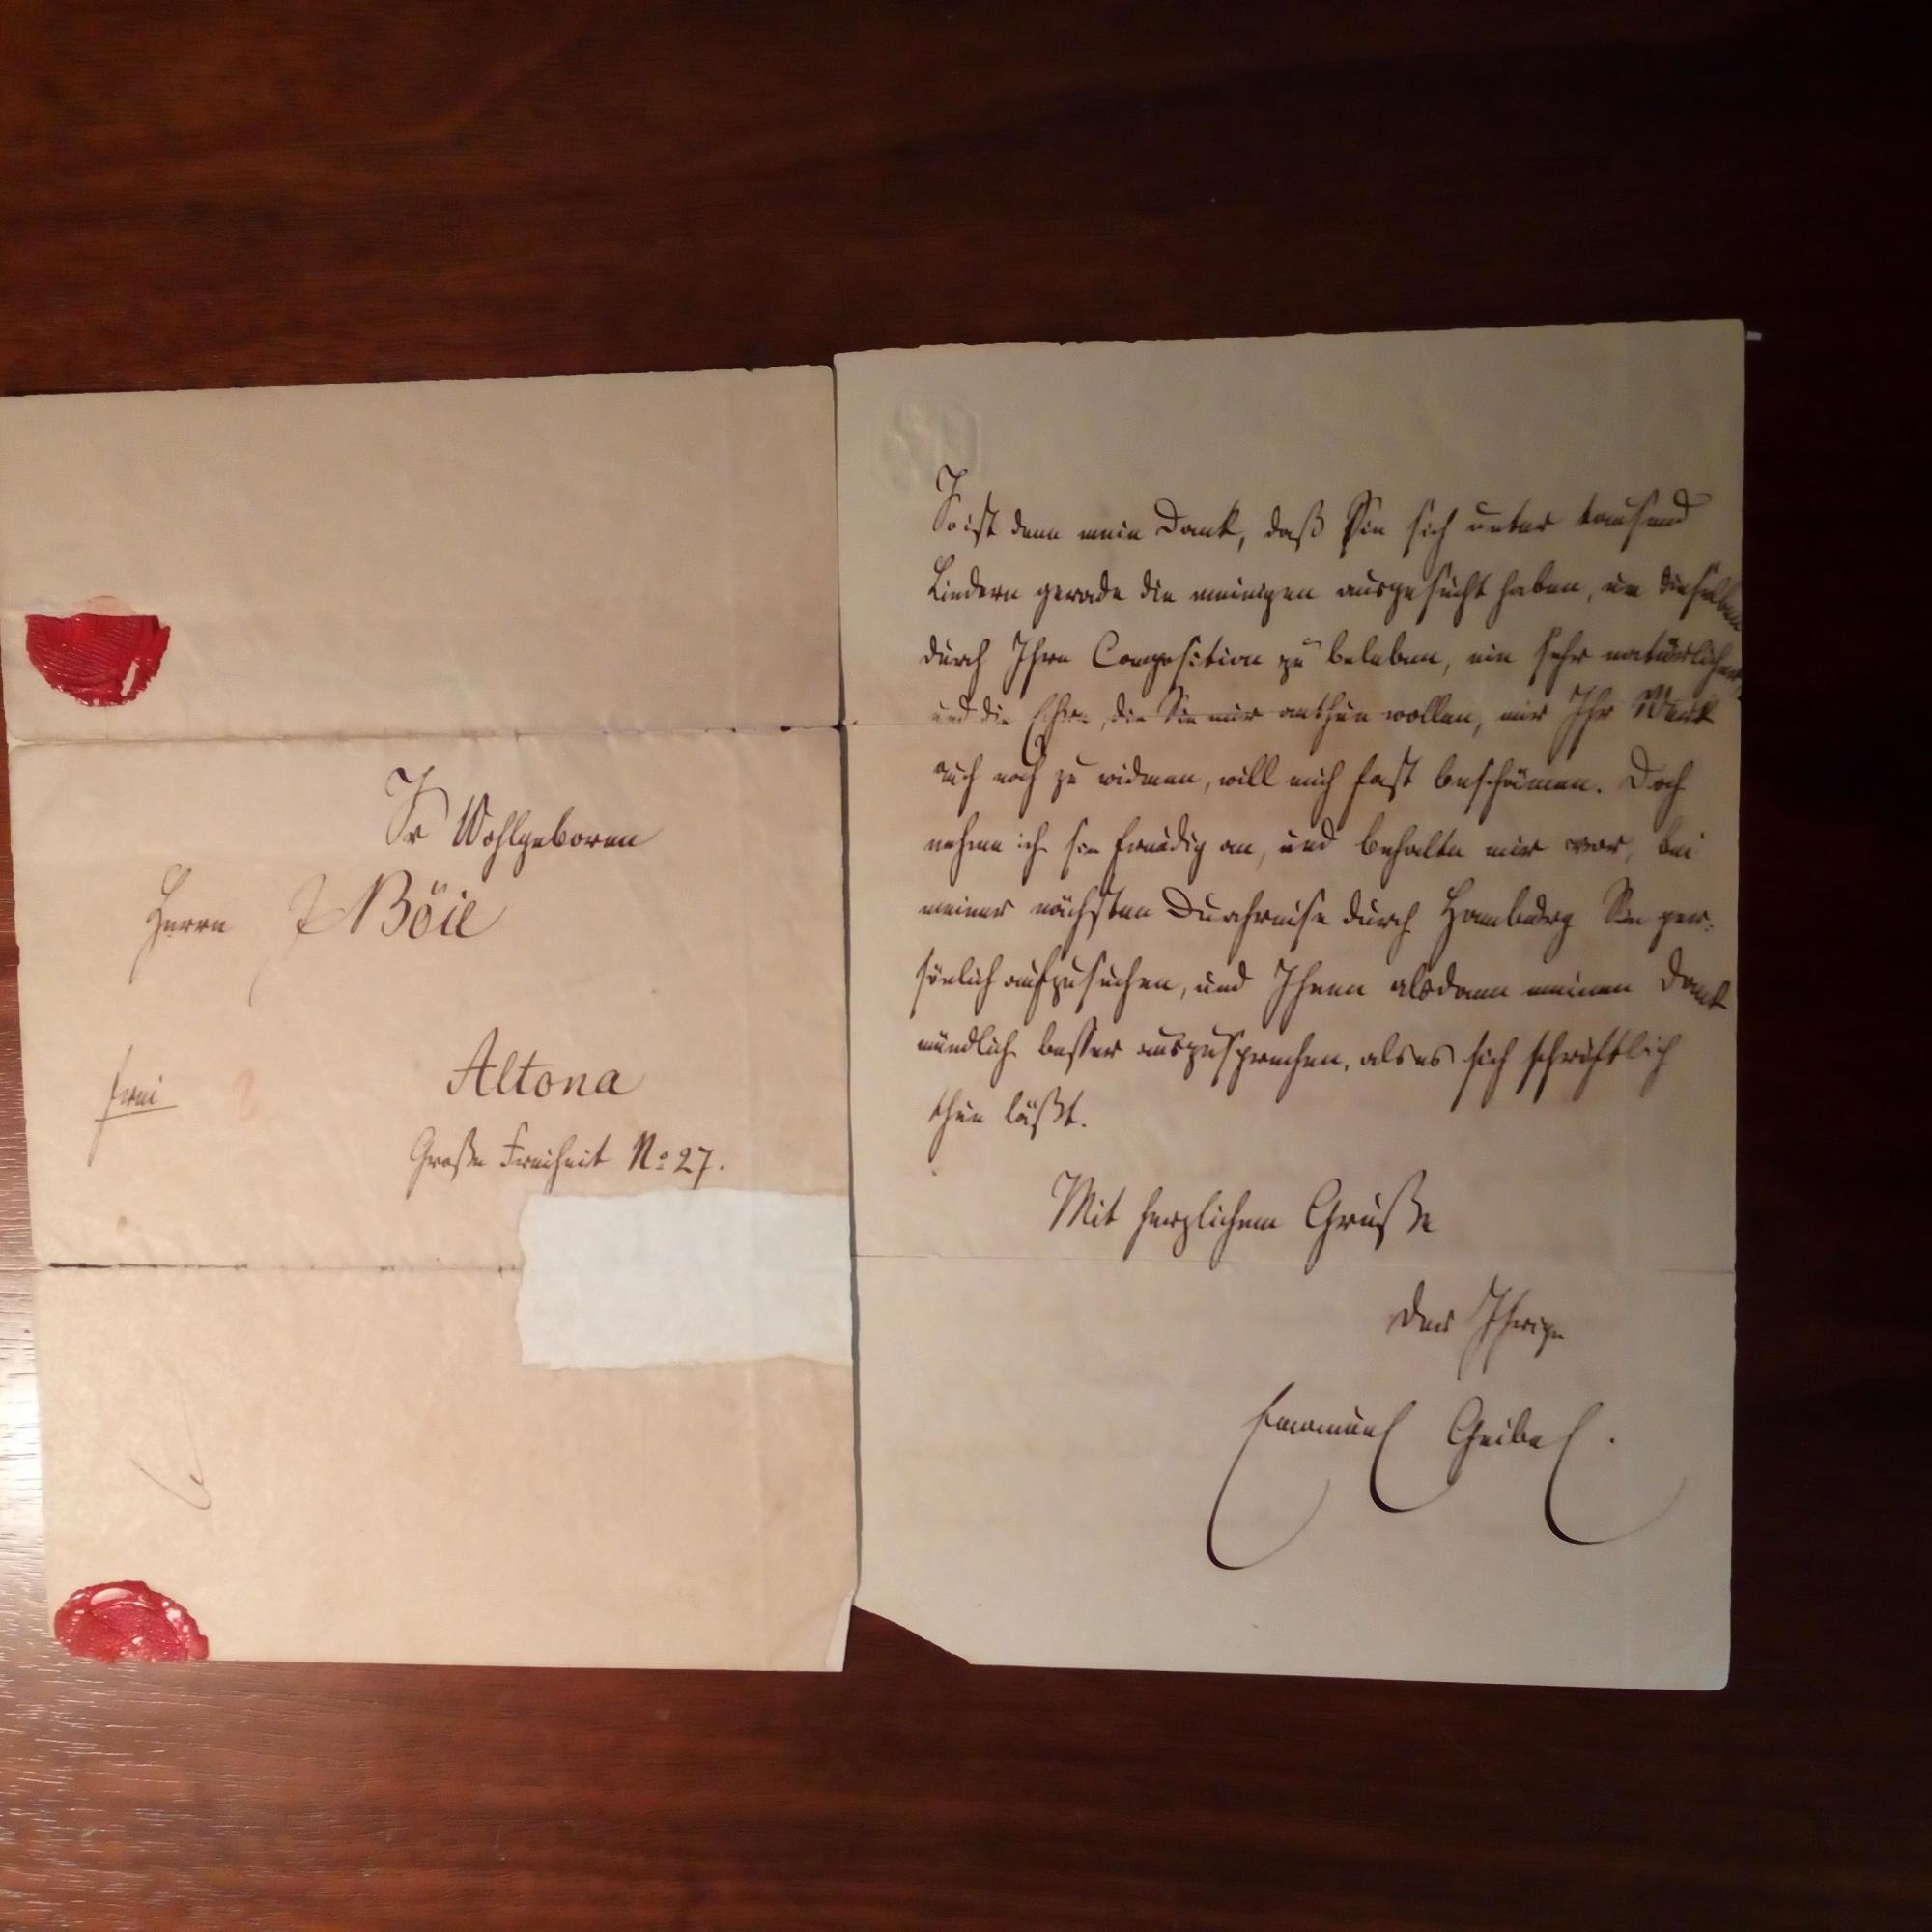 Sr Wohlgeboren
Herrn J Böie
frei
Altona
Große Freiheit No 27.
So ist denn mein Dank, daß Sie sich unter tausend
Liedern gerade die meinigen ausgesucht haben, um dieselben
durch Ihre Composition zu beleben, ein sehr natürlicher,
und die Ehre, die Sie mir anthun wollen, mir Ihr Werk
auch noch zu widmen, will mich fast beschämen. Doch
nehme ich sie freudig an, und behalte mir vor, bei
meiner nächsten Durchreise durch Hamburg Sie per-
sönlich aufzusuchen, und Ihnen alsdann meinen Dank
mündlich besser auszusprechen, als es sich schriftlich
thun läßt.
Mit herzlichem Gruße
Der Ihrige
Emanuel Geibel.